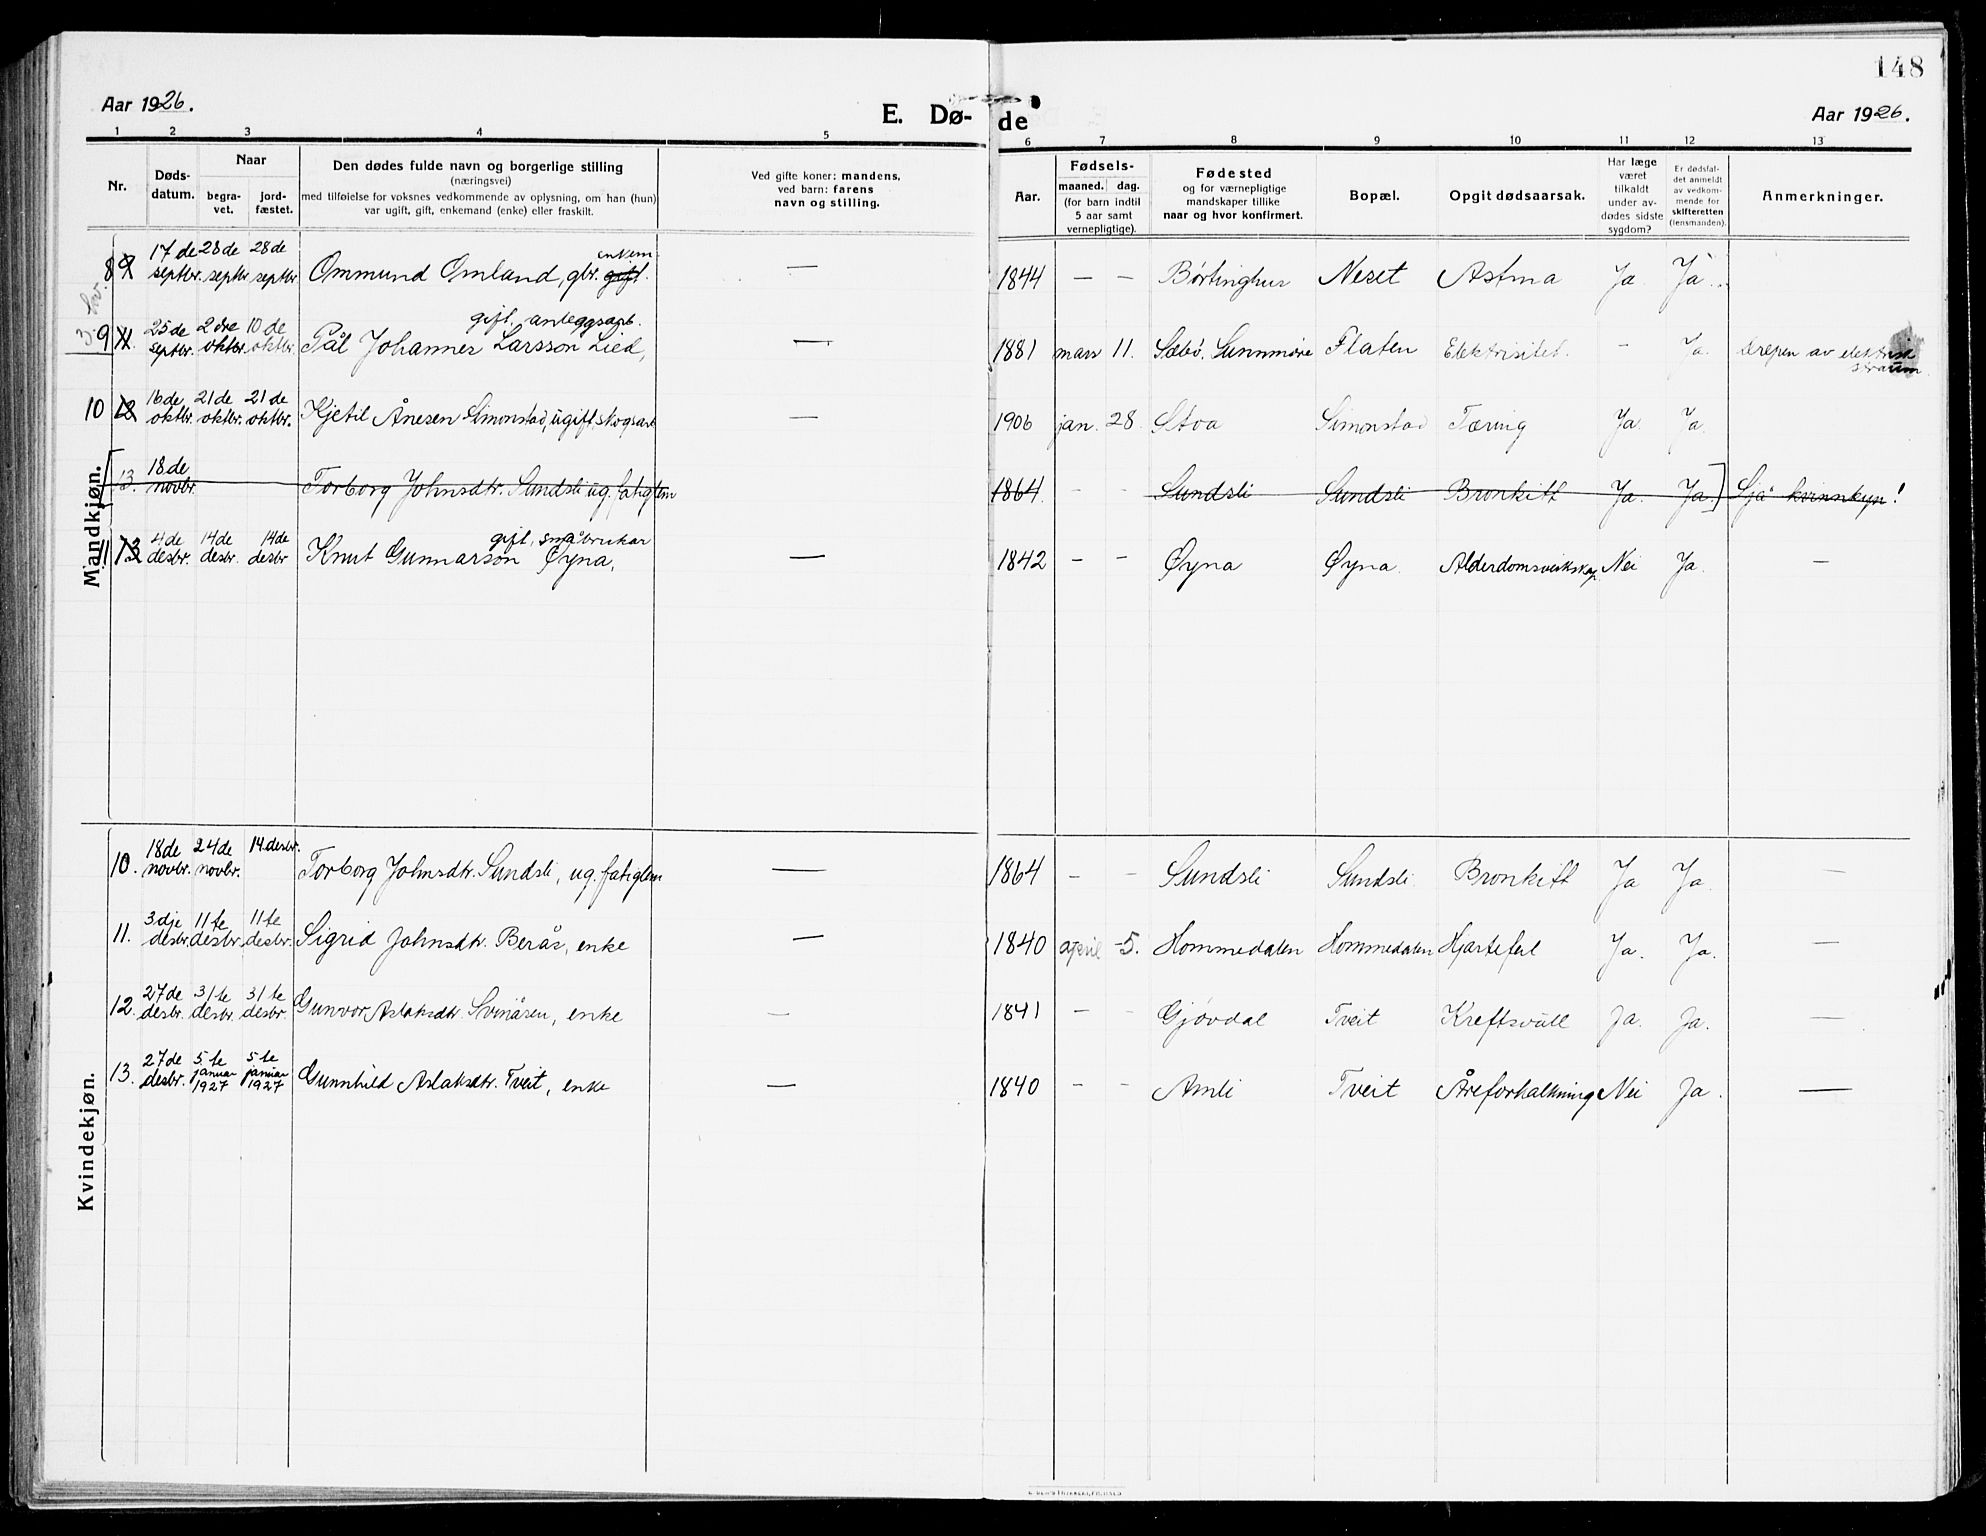 148
Aar 1926.
E. Dø-de
Aar 1926.
1 2 3 4 5 6 7 8 9 10 11 12 13
Nr.
Døds-
datum.
Naar
begra-
vet.
jord-
fæstet.
Den dødes fulde navn og borgerlige stilling
(næringsvei)
med tilføielse for voksnes vedkommende av oplysning, om han (hun)
var ugift, gift, enkemand (enke) eller fraskilt.
Ved gifte koner: mandens,
ved barn: farens
navn og stilling.
Aar.
Fødsels-
maaned. dag.
(for barn indtil
5 aar samt
vernepligtige).
Fødested
og for værnepligtige
mandskaper tillike
naar og hvor konfirmert.
Bopæl.
Opgit dødsaarsak.
Har læge
været
tilkaldt
under av-
dødes sidste
sygdom?
Er dødsfal-
det anmeldt
av vedkom-
mende for
skifteretten
(lensmanden).
Anmerkninger.
Mandkjøn.
17 de 28 de 28 de enkem.
8 9 septbr. septbr septbr Ommund Omland, gbr. gift. — 1844 — — Børtinghus Neset Astma Ja Ja
25 de 2 dre 10 de gift. anleggsarb.
9 11. septbr. oktbr. oktbr. Pål Johannes Larsson Lied, — 1881 mars 11. Sæbö, Sunnmöre Flaten Elektrisitet. — Ja. drepen av elektrisk
straum
16 de 21 de 21 de
10 12 oktbr. oktbr. oktbr. Kjetil Ånesen Simonstad, ugift, skogsarb — 1906 jan. 28. Stoa Simonstad Tæring Ja. Ja.
18 de
13. novbr. Torborg Johnsdtr. Sundsli ug. fatiglem 1864. - - Sundsli Sundsli Bronkitt Ja. Ja.] Sjå kvinnkyn!
4 de 14 de 14 de gift, småbrukar
11 13 desbr. desbr. desbr Knut Gunnarson Øyna, — 1842 - - Øyna Øyna. Alderdomsveikskap Nei Ja. —
Kvindekjøn.
18 de 24 de 14 desbr.
10. novbr. novbr. Torborg Johnsdtr. Sundsli, ug. fatiglem — 1864 - - Sundsli Sundsli. Bronkitt Ja Ja. —
3 dje 11 te 11 te
11. desbr. desbr. desbr. Sigrid Johnsdtr. Berås, enke — 1840 april 5. Hommedalen Hommedalen Hjartefeil Ja. Ja. —
27 de 31 te 31 te
12. desbr. desbr. desbr. Gunvor Aslaksdtr. Svinåsen, enke — 1841 - - Gjövdal Tveit Kreftsvull Ja. Ja. —
27 de 5 te 5 te
13. desbr. januar januar Gunnhild Aslaksdtr. Tveit, enke — 1840 - - Amli Tveit Åreforkalkning Nei Ja. —
1927 1927